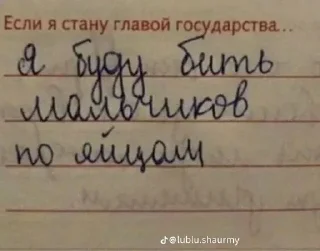 Если я стану главой государства...
я буду бить
мальчиков
по яйцам
@lublu.shaurmy